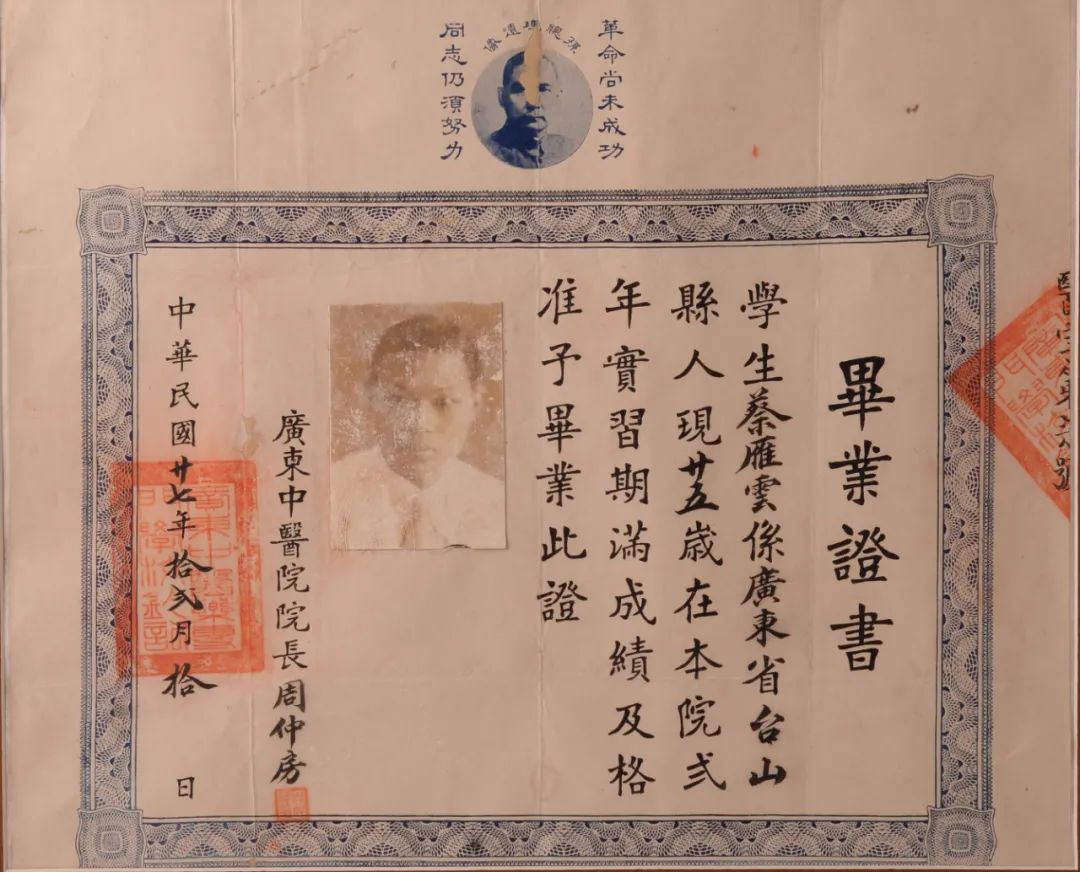 革命尚未成功
孫總理遺像
同志仍須努力
畢業證書
學生蔡雁雲係廣東省台山
縣人現廿五歲在本院弍
年實習期滿成績及格
准予畢業此證
廣東中醫院院長周仲房
中華民國廿七年拾弍月拾日